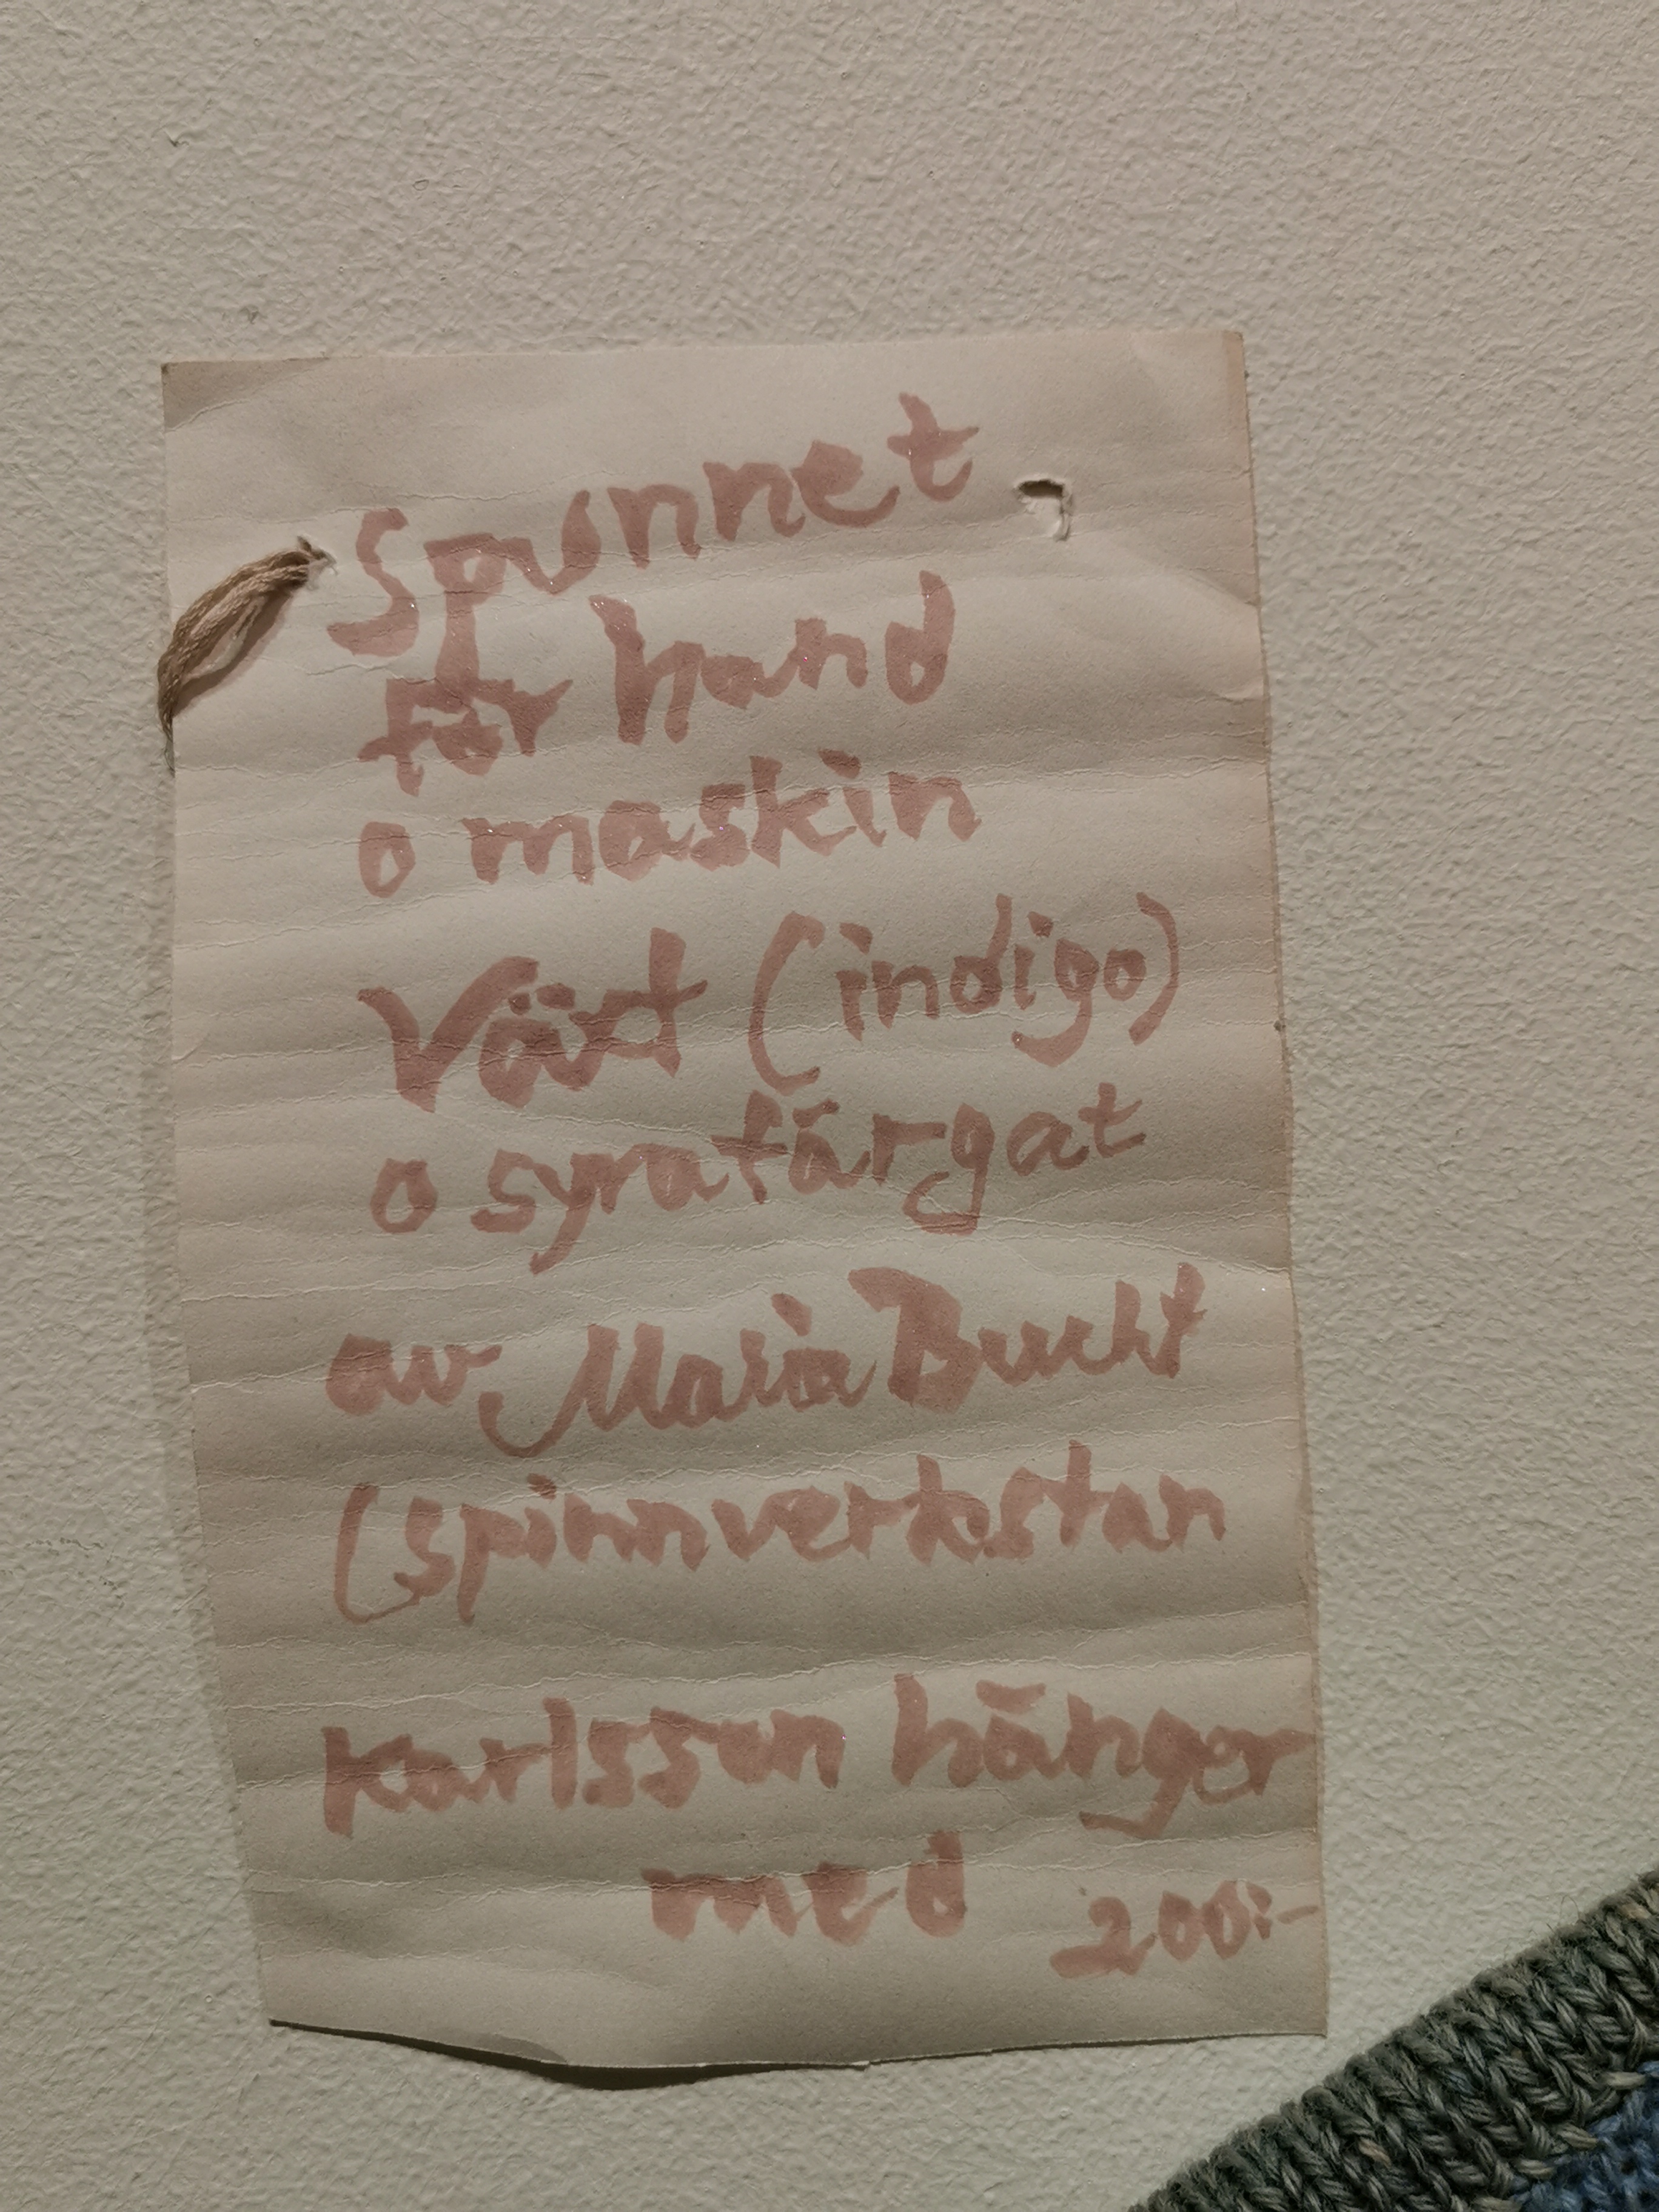 Spunnet
för hand
o maskin
Växt (indigo)
o syrafärgat
av Maria Bucht
(spinnverkstan
Karlsson hänger
med 200:-